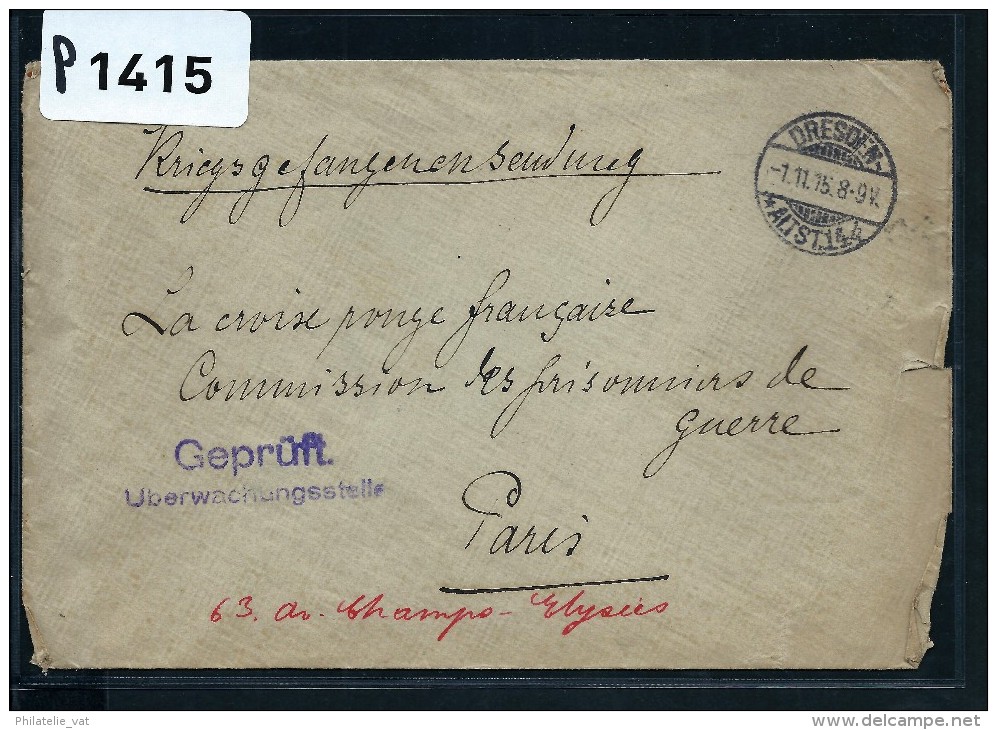 P 1415
Kriegsgefangenensendung
DRESDEN-
-1.11.15.8-9V.
* ALTST.14 *
La croixe rouge française
Commission des prisonniers de
guerre
Geprüft.
Überwachungsstelle
Paris
63. av. Champs-Elysées
Philatelie_vat
delcampe.net